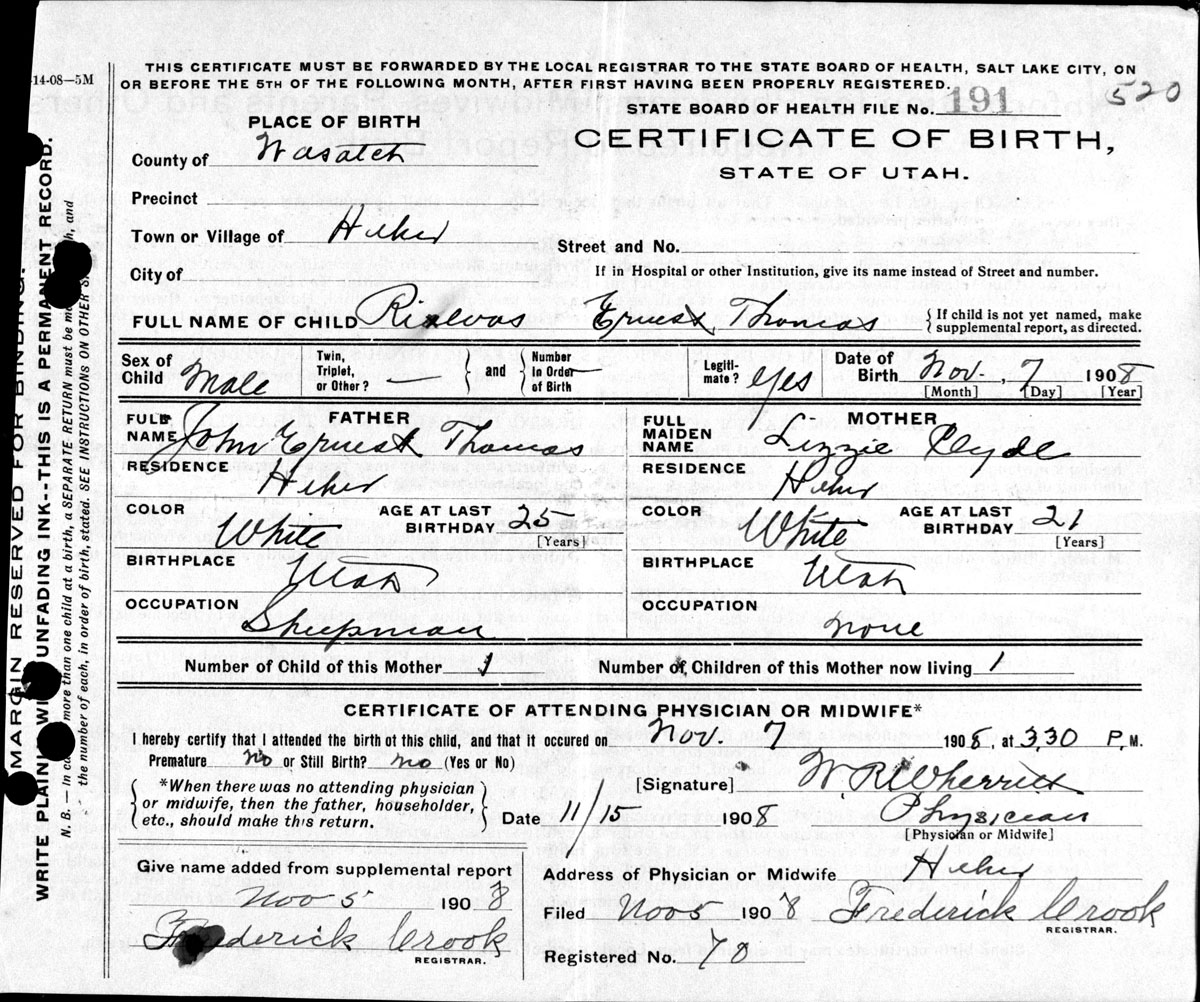 -14-08—5M
THIS CERTIFICATE MUST BE FORWARDED BY THE LOCAL REGISTRAR TO THE STATE BOARD OF HEALTH, SALT LAKE CITY, ON
OR BEFORE THE 5TH OF THE FOLLOWING MONTH, AFTER FIRST HAVING BEEN PROPERLY REGISTERED.
STATE BOARD OF HEALTH FILE No. 191 520
PLACE OF BIRTH
CERTIFICATE OF BIRTH,
STATE OF UTAH.
County of Wasatch
Precinct
Town or Village of Heber
Street and No.
City of
If in Hospital or other Institution, give its name instead of Street and number.
FULL NAME OF CHILD Ernest Thomas { If child is not yet named, make
supplemental report, as directed.
Sex of Child Male Twin, Triplet, or Other? — } and { Number In Order of Birth — Legiti- mate? yes Date of Birth Nov. , 7 1908
[Month] [Day] [Year]
FULL NAME FATHER John Ernest Thomas
FULL MAIDEN NAME MOTHER Lizzie Clyde
RESIDENCE Heber
RESIDENCE Heber
COLOR White AGE AT LAST BIRTHDAY 25 [Years]
COLOR White AGE AT LAST BIRTHDAY 21 [Years]
BIRTHPLACE Utah
BIRTHPLACE Utah
OCCUPATION Sheepman
OCCUPATION None
Number of Child of this Mother 1 Number of Children of this Mother now living 1
CERTIFICATE OF ATTENDING PHYSICIAN OR MIDWIFE*
I hereby certify that I attended the birth of this child, and that it occured on Nov. 7 1908, at 3.30 P. M.
Premature No or Still Birth? no (Yes or No)
{ *When there was no attending physician
or midwife, then the father, householder,
etc., should make this return. }
[Signature] W. R. Wherritt
Date 11/15 1908 Physician
[Physician or Midwife]
Give name added from supplemental report
Nov 5 1908
Frederick Crook
REGISTRAR.
Address of Physician or Midwife Heber
Filed Nov 5 1908 Frederick Crook
REGISTRAR.
Registered No. 70
MARGIN RESERVED FOR BINDING.
WRITE PLAINLY WITH UNFADING INK--THIS IS A PERMANENT RECORD.
N. B. — In case more than one child at a birth, a SEPARATE RETURN must be made for each, and
the number of each, in order of birth, stated. SEE INSTRUCTIONS ON OTHER SIDE